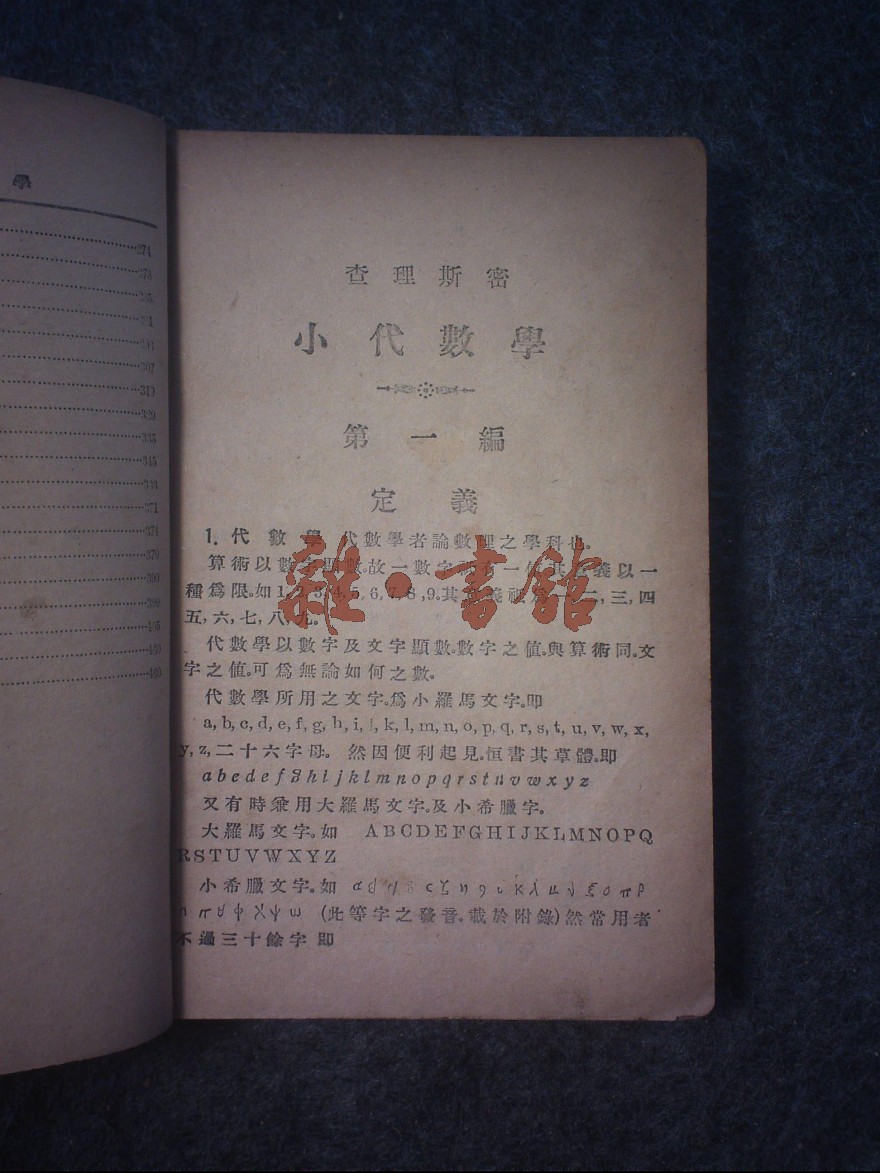 學
274
278
307
319
329
335
345
371
374
379
390
399
查理斯密
小代數學
第一編
定義
1. 代數學 代數學者論數理之學科也
算術以數字顯數。故一數字 有一 其 義以一
種爲限。如1, 2, 3, 4, 5, 6, 7, 8, 9. 其 義 二, 三, 四
五, 六, 七, 八, 九。
代數學以數字及文字顯數。數字之值。與算術同。文
字之值。可爲無論如何之數。
代數學所用之文字。爲小羅馬文字。即
a, b, c, d, e, f, g, h, i, j, k, l, m, n, o, p, q, r, s, t, u, v, w, x,
y, z, 二十六字母。 然因便利起見。恒書其草體。即
a b c d e f g h i j k l m n o p q r s t u v w x y z
又有時兼用大羅馬文字。及小希臘字。
大羅馬文字。如 A B C D E F G H I J K L M N O P Q
R S T U V W X Y Z
小希臘文字。如
(此等字之發音。載於附錄) 然常用者
不過三十餘字即
雜·書館